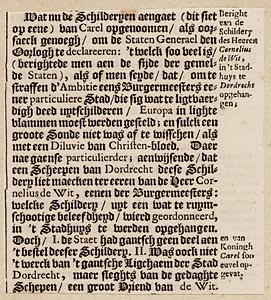 Wat nu de Schilderyen aengaet (dit siet
op eene) van Carel opgenoomen/ als oor-
saeck genoegh/ om de Staten Generael den
Oorlogh te declareeren: 't welck soo veel is/
(berightede men aen de sijde der gemel-
de Staten), als of men seyde/ dat/ om te
straffen d'Ambitie eens Burgermeesters ee-
ner particuliere Stad/ die sig wat te ligtvaer-
digh deed uytschilderen / Europa in lighte
vlammen moest werden gesteld; en sulck een
groote Sonde niet was af te wisschen/ als
met een Diluvie van Christen-bloed. Daer
nae gaense particulierder; aenwijsende/ dat
een Scheepen van Dordrecht deese Schil-
dery liet maecken ter eeren van de Heer Cor-
nelius de Wit, eenen der Burgermeesters:
welcke Schildery/ uyt een wat te ruym-
schootige beleefdheyd/ wierd geordonneerd,
in 't Stadhuys te werden opgehangen.
Doch/ I. de Staet had gantsch geen deel aen
't bestel deeser Schildery. II. Was oock niet
't werck van 't gantsche Lighaem der Stad
Dordrecht, maer sleghts van de gedaghte
Schepen/ een groot Vriend van de Wit.
Beright
van de
Schildery
des Heeren
Cornelius
de Wit,
in 't Stad-
huys te
Dordrecht
opgehan-
gen;
en van
Koningh
Carel soo
euvel op-
gevat.